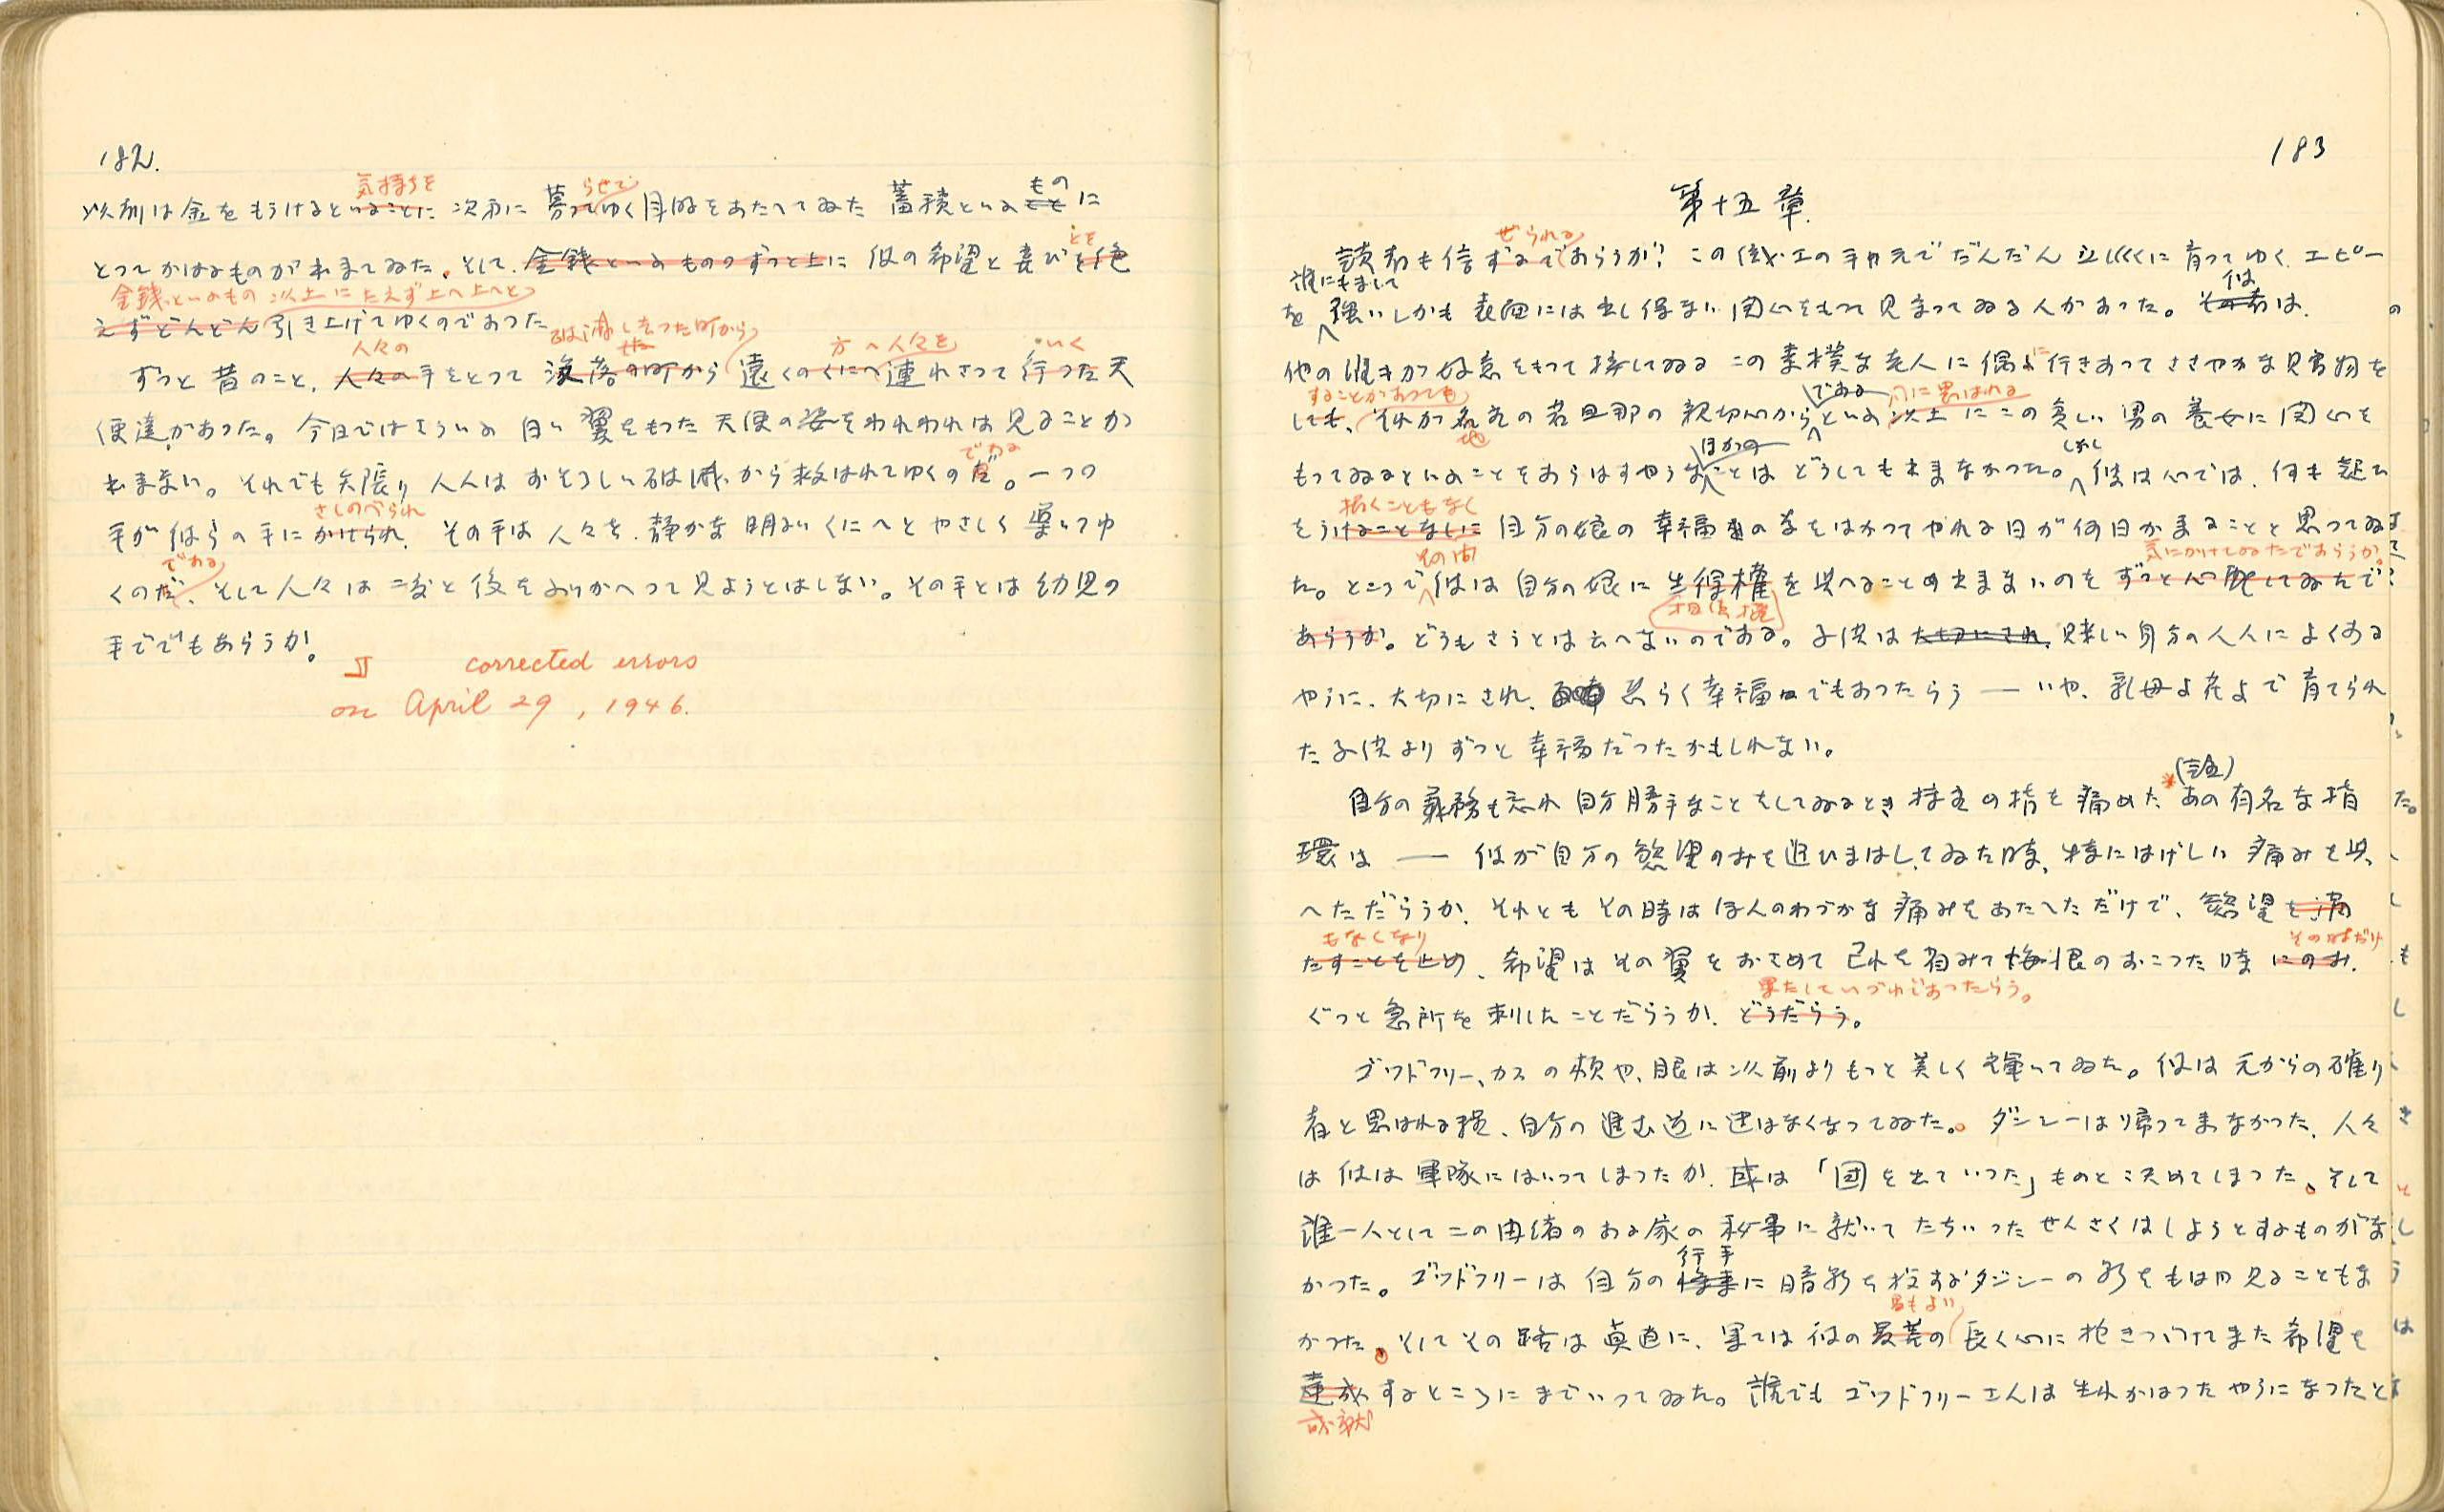 182.
気持ちを らせて もの
以前は金をもうけるといふことに 次第に 募ってゆく目的をあたへてゐた 蓄積といふ こと に
とを
とってかはるものが出来てゐた。そして、金銭といふもののずっと上に 彼の希望と喜びを絶
金銭といふもの 以上に たえず上へ上へと
えずどんどん引き上げてゆくのであった
破滅しさった町から
人々の 方へ人々を いく
ずっと昔のこと、人々の手をとって 没落の町から 遠くのくにへ連れさって 行った 天
使達があった。今日ではさういふ 白い翼をもった 天使の姿をわれわれは見ることが
である
出来ない。それでも矢張り 人人は おそろしい破滅から救はれてゆくのだ。一つの
さしのべられ
手が彼らの手にかけられ、その手は人々を、静かな明るいくにへとやさしく 導いてゆ
である
くのだ、そして人々は二度と後をふりかへって見ようとはしない。その手とは幼児の
手ででもあらうか。
corrected errors
on April 29, 1946.
183
第十五章
ぜられる
読者も信ずるであらうか? この機工の手許でだんだん立派に育ってゆくエピー
誰にもまして 彼
を 強いしかも表面には出し得ない関心をもって見まってゐる人があった。その者は、
他の誰もが好意をもって接してゐる この素朴な老人に偶に行きあってささやかな買物を
することがあっても である に思はれる
しても、それが名た の若旦那の親切心からといふ 以上に この貧しい男の養女に関心を
地
ほかの しかし
もってゐるといふことをあらはすやうなことは どうしても出来なかった。彼は心では、何も疑ひ
招くこともなく
をうけることなしに 自分の娘の幸福の為をはかってやれる日が何日か来ることと思ってゐ
その間 気にかけてゐたであらうか。
た。ところで彼は自分の娘に生得権を与へることの出来ないのをずっと心配してゐたで
相続権
あらうか。どうもさうとは云へないのである。子供は大切にされ、賎しい身分の人人によくある
やうに、大切にされ、恐らく幸福でもあったらう ― いや、乳母よ花よで育てられ
た子供よりずっと幸福だったかもしれない。
(註)
自分の義務も忘れ自分勝手なことをしてゐるとき持主の指を痛めた*あの有名な指
環は ― 彼が自分の慾望のみを追ひまはしてゐた時、特にはげしい痛みを与
へただらうか、それともその時はほんのわづかな痛みをあたへただけで、慾望を満
もなくなり その時だけ
たすことを止め、希望はその翼をおさめて己れを省みて悔恨のおこった時にのみ、
果たしていづれであったらう。
ぐっと急所を刺したことだらうか、どうだらう。
ゴッドフリー、カスの頬や、眼は以前よりもっと美しく輝いてゐた。彼は元からの確り
者と思はれる程、自分の進む道に迷はなくなってゐた。ダンシーは帰って来なかった、人々
は彼は軍隊にはいってしまったか、或は「国を出ていった」ものと決めてしまった。そして
誰一人としてこの由緒のある家の秘事に就いてたちいったせんさくはしようとするものがな
行手
かった。ゴッドフリーは自分の将来に暗影を投ずるダンシーの影をもはや見ることもな
最もよい
かった。そしてその路は真直に、果ては彼の最善の長く心に抱きつづけてきた希望を
達成するところにまでいってゐた。誰でもゴッドフリーさんは生れかはったやうになったと
成就